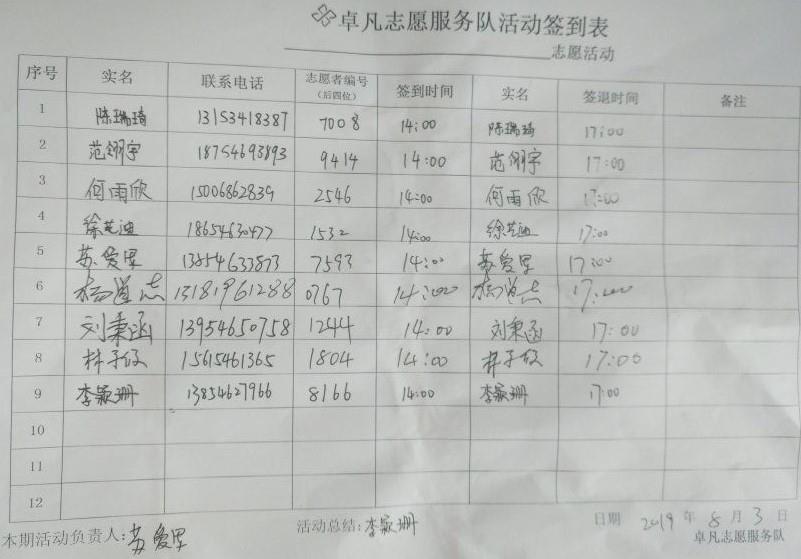 卓凡志愿服务队活动签到表
志愿活动
序号 实名 联系电话 志愿者编号（后四位） 签到时间 实名 签退时间 备注
1 陈瑞琦 13153418387 7008 14:00 陈瑞琦 17:00
2 范翎宇 18754693893 9414 14:00 范翎宇 17:00
3 何雨欣 15006862839 2546 14:00 何雨欣 17:00
4 徐艺迪 18654630477 1532 14:00 徐艺迪 17:00
5 苏爱军 13854633873 7593 14:00 苏爱军 17:00
6 杨道志 13181961288 0767 14:00 杨道志 17:00
7 刘秉函 13954650758 1244 14:00 刘秉函 17:00
8 林子 15615461365 1804 14:00 林子 17:00
9 李颖珊 13854627966 8166 14:00 李颖珊 17:00
10
11
12
本期活动负责人:苏爱军 活动总结:李颖珊 日期 2019 年 8 月 3 日
卓凡志愿服务队